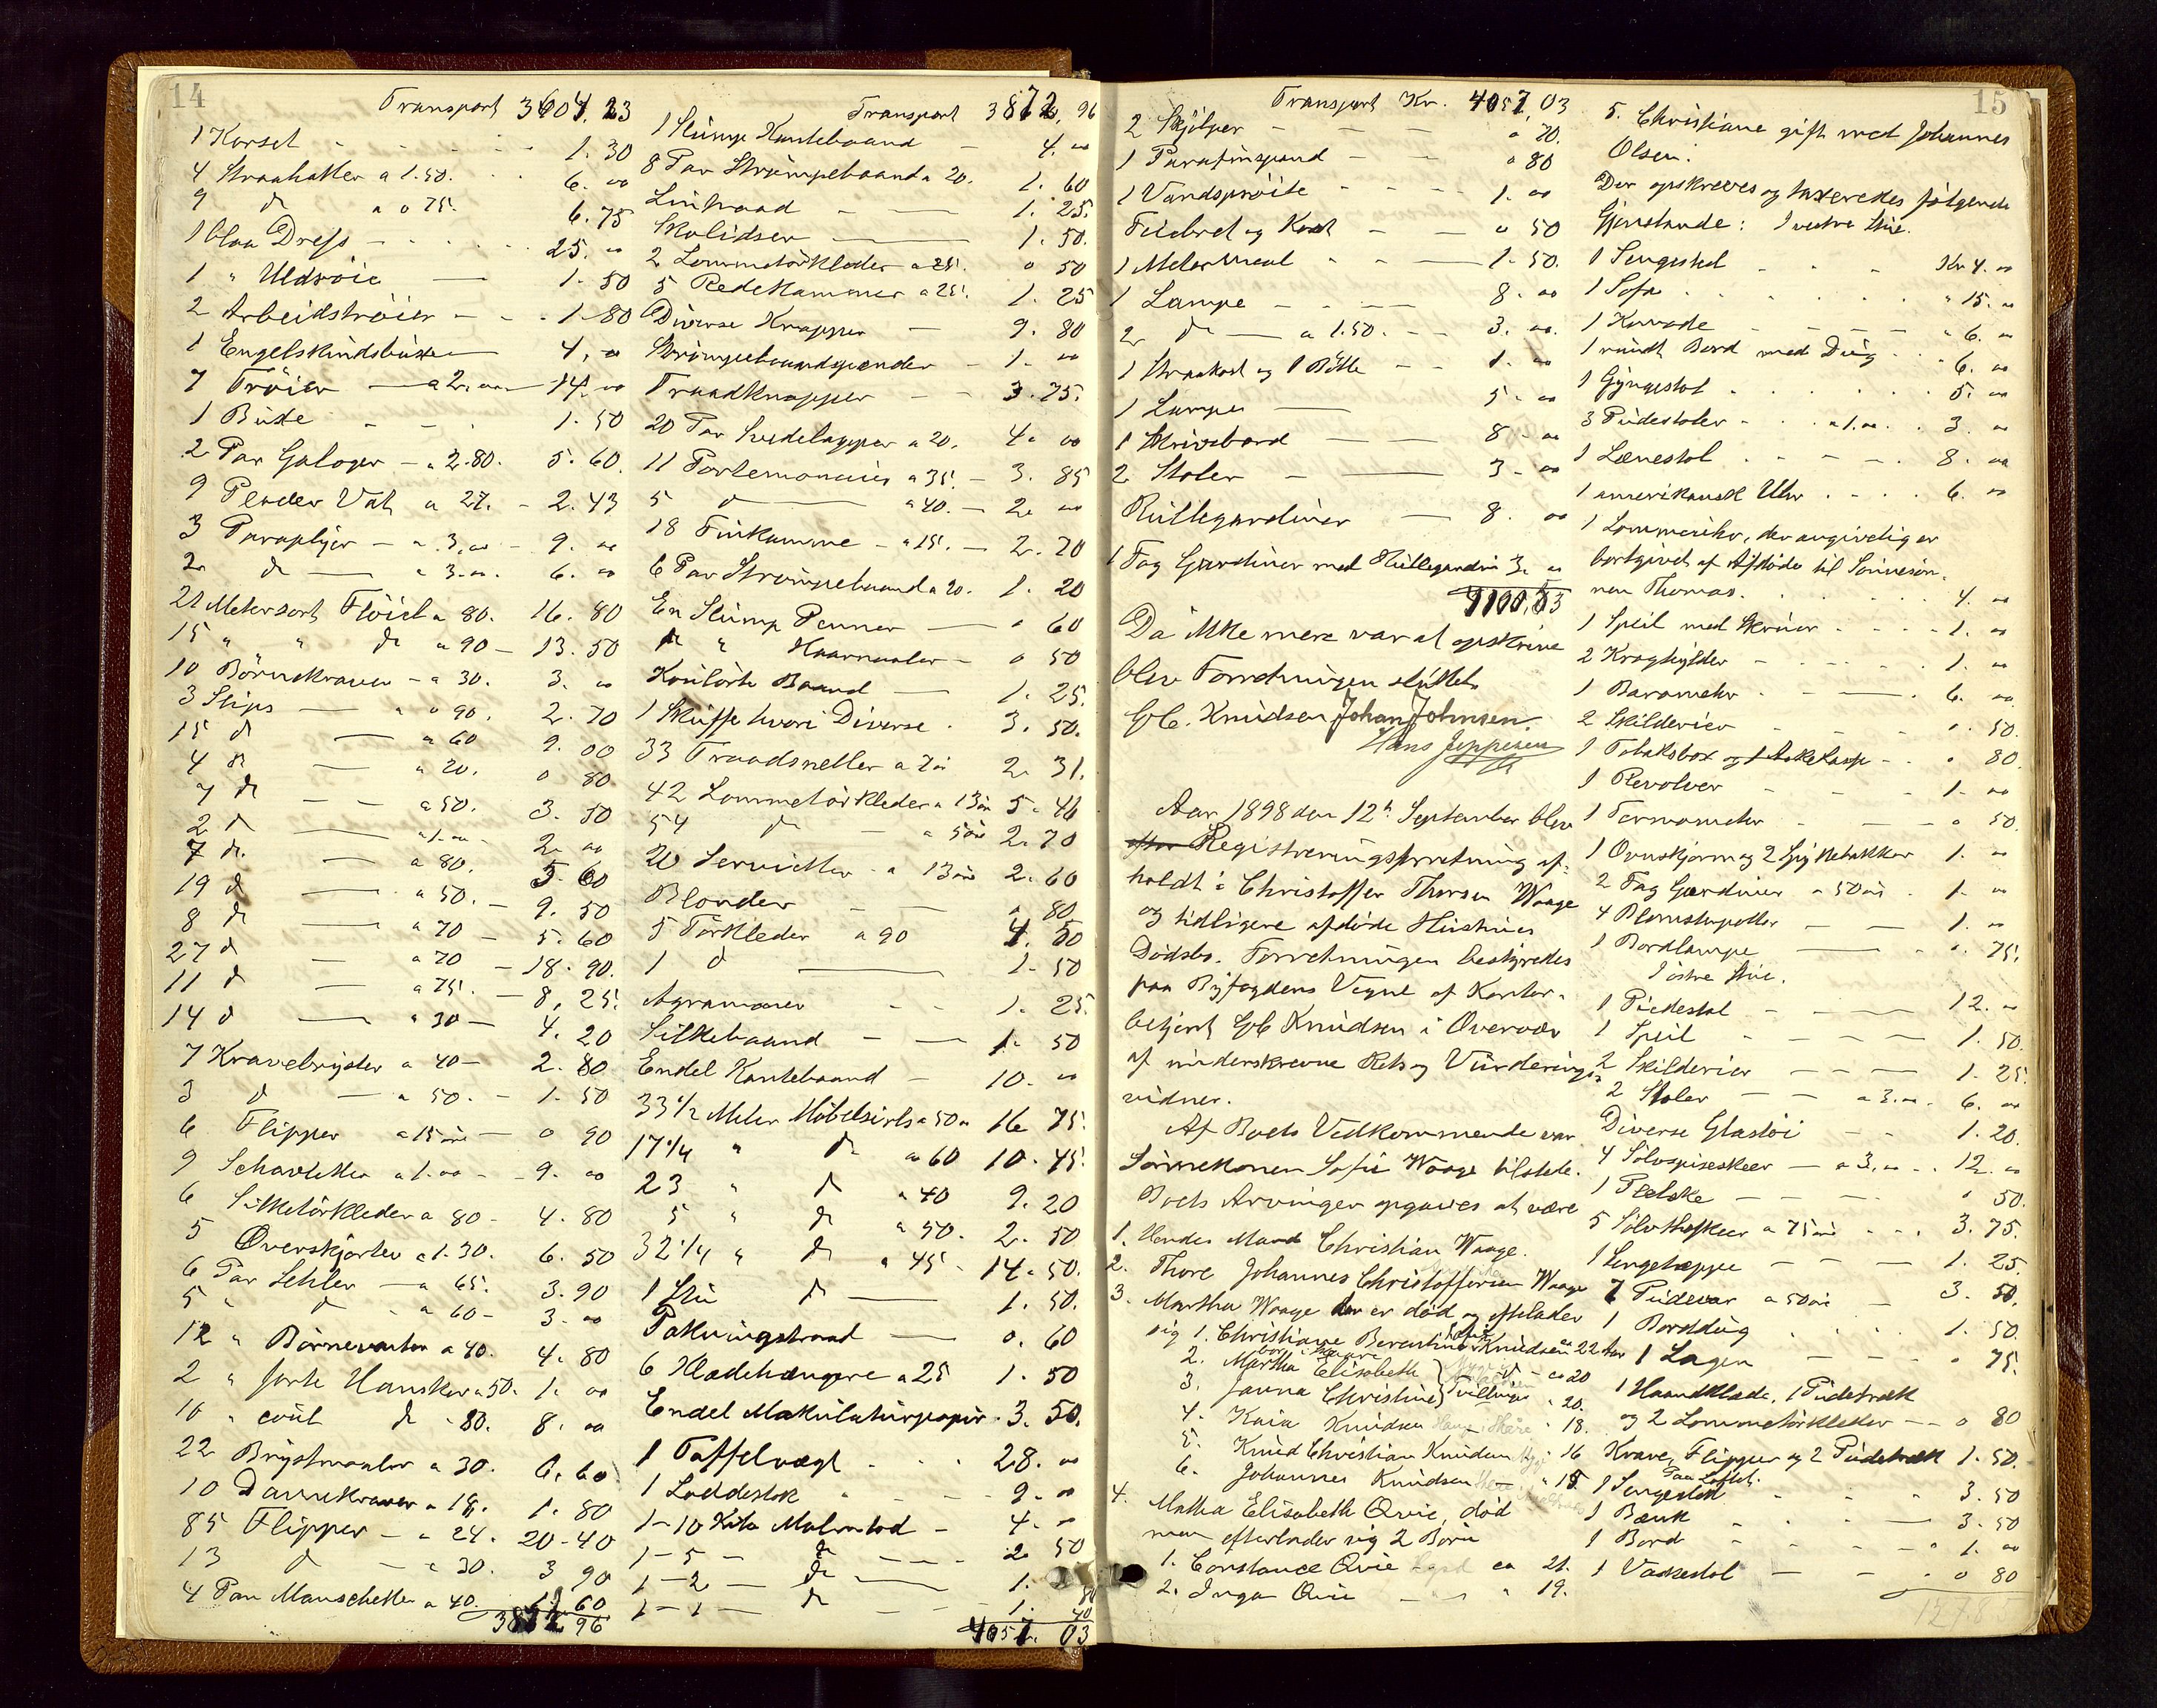 14
Transport 3604,23
1 Korset - - - - 1.30
4 Straahatter a 1.50. - - 6. 00
9 do " a 0 75. 6.75
1 blaa Dress - - - - 25. 00
1 " Uldtröie — 1.50
2 Arbeidströier - - - 1.80
1 Engelskindsbuxe — 4,00
7 Tröier — a 2.00 — 14,00
1 Buxe - - - 1.50
2 Par Galoger - a 2.80. 5.60.
9 Plader Vat a 27. - 2.43
3 Paraplyer - a 3,00 - 9. 00
2 do — a 3.00. 6. 00
21 Metersort Flöiel a 80. 16.80
15 " " do a 90 - 13.50
10 Börnekraver - a 30. 3. 00
3 Slips — a 0 90. 2.70
15 do — a 60 9.00
4 do — a 20. 0 80
7 do - - a 50. 3.50
2 do — a 1.00 - 2. 00
7 do. — a 80. 5.60
19 do — a 50. - 9.50
8 do — a 70 - 5.60
27 do — a 70 - 18.90.
11 do — a 75. - 8,25.
14 do — a 30 - 4.20
7 Kravebryster a 40 - 2.80
3 do — a 50. - 1.50
6 Flipper a 15 öre — 0 90
9 Schavletter a 1.00 - - 9. 00
6 Silketörkleder a 80 - 4.80
5 Overskjorter a 1.30. 6.50
6 Par Sehler — a 65. 3.90
5 " do - a 60 - 3. 00
12 " Börnevanter a 40. 4.80
2 " sorte Hansker a 50. 1. 00
10 " coul do - 80. 8. 00
22 Brystnaaler a 30. 6.60
10 Damekraver a 18. 1.80
85 Flipper - a 24. 20.40
13 do - a 30. 3 90
4 Par Manschetter a 40. 1 60
3872 96
Transport 3872,96
1 Slump Kantebaand - 4. 00
8 Par Strömpebaand a 20. 1.60
Linhaad - — 1.25.
Skolidser — 1.50.
2 Lommetörkleder a 25. 0 50
5 Redekammer a 25. 1.25
Diverse Knapper — 9.80
Strömpebaandspender - 1. 00
Traadknapper - - 3.75.
20 Par Svedelapper a 20. 4. 00
11 Portemonnaies a 35. - 3.85
5 do — a 40. - 2. 00
18 Finkamme - a 15. - 2.70
6 Par Strömpebaand a 20. 1.20
En Slump Penner — " 60
do " Haarnaaler - 0 50
Koulörte Baand — 1.25.
1 Skuffe hvori Diverse . 3.50.
33 Traadsneller a 7 ör 2.31.
42 Lommetörkleder a 13 ör 5.46
54 do - a 5 öre 2.70
20 Servietter - a 13 öre 2.60
Blonder - — " 80
5 Törkleder a 90 4.50
1 do — 1.50
Agramaner - - 1.25.
Silkebaand - — 1.50
Endel Kantebaand - 10. 00
33 1/2 Meter Möbelsirts a 50 ö 16 75.
17 1/4 " do a 60 10.45.
23 " do " 40 9.20
5 " do a 50. 2.50
32 1/4 " do a 45 - 14.50.
1 Stü do — 1.50.
Pakningstraad — 0.60
6 Kladehængere a 25 1.50
Endel Makulaturpapir - 3.50.
1 Taffelvægt - - . 28. 00
1 Loddestok " - - - 9. 00
1 - 10 Kilo Malmlod - 4. 00
1 - 5 - do - - - 2 50
1 - 2 - do — 1.
1 - 1 - do - - 1. 40
4057. 03
15
Transport Kr. 4057,03
2 Skjölper - - — " 70.
1 Parafinspand - - " 80
1 Vandspröite - - - - 1. 00
Feiebret og Kost - - 0 50
1 Metermaal - - — 1.50.
1 Lampe - - - - 8. 00
2 do — a 1.50. - - 3. 00.
1 Straakost og 1 Bötte - - 1. 00
1 Lampe — 5. 00
1 Skrivebord — — 8. 00
2 Stoler - — 3. 00
Rullegardiner — 8. 00
1 Fag Gardiner med Rullegardin 3. 00
4100,53
Da ikke mere var at opskrive
blev Forretningen sluttet.
Gb. Knudsen Johan Johnsen
Hans Jeppesen
Aar 1898 den 12te September blev
efter Registreringsforretning af-
holdt i Christoffer Thorsen Waage
og tidligere afdöde Hustrues
Dödsbo. Forretningen bestyredes
paa Byfogdens Vegne af Kontor-
betjent Gb Knudsen i Overvær
af underskrevne Rets og Vurderings-
vidner.
Af Boets Vedkommende var
Sönnekonen Sofie Waage tilstede.
Boets Arvinger opgaves at være
1. Hendes Mand Christian Waage.
2. Thore Johannes Christoffersen Waage
3. Martha Waage der er död og efterlader
sig 1. Christiane Berentine Knudsen ca 22 Aar
2. Martha Elisabeth } do - ca 20
3. Janna Christine } Tvillinger " 20.
4. Kaia Knudsen " 18.
5. Knud Christian Knudsen " 16
6. Johannes Knudsen " 15
4. Martha Elisabeth Qvie, död
men efterlader sig 2 Börn
1. Constance Qvie ca 21.
2. Inga Qvie — " " 19.
5. Christiane gift med Johannes
Olsen.
Der opskreves og taxeredes fölgende
Gjenstande: I vestre Stue.
1 Sengested - - - Kr 4. 00
1 Sofa . . . . . . " 15. 00
1 Komode - - - - " 6. 00
1 rundt Bord med Dug . . . 6. 00
1 Gyngestol . . . . . . 5. 00
3 Pudestoler - . . a 1.00. . 3. 00
1 Lænestol . . - - . 8. 00
1 amerikansk Uhr . - - . 6. 00
1 Lommeuhr, der angivelig er
bortgivet af Afdöde til Sönnesön-
nen Thomas. . . . . . . 4. 00
1 Speil med Skruer - - - - 1. 00
2 Kroghylder - - - - - 1. 00
1 Barometer . - - — . 6. 00
2 Skilderier - - - . 50.
1 Tobaksbox og 1 Askekop - - . 80.
1 Revolver - - - 1. 00
1 Termometer - — 0 50.
1 Ovnskjerm og 2 Spyttebakker 1. 00
2 Fag Gardiner a 50 öre . 1. 00
4 Blomsterpotter - — 1. 00
1 Bordlampe — - 0. 75.
I östre Stue.
1 Pudestol - - - - 12. 00
1 Speil - - — — 1.50.
2 Skilderier - - — 1.25.
2 Stoler - - a 3.00. 6. 00
Diverse Glastöi - - 1.20.
4 Sölvspiseskeer — a 3,00 - . 12. 00
1 Pletske - - - - " 50.
5 Sölvtheskeer a 75 öre - . . 3.75.
1 Sengeteppe - - — 1.25.
7 Pudevar a 50 öre — 3. 50.
1 Borddug . . . . 1.50.
1 Lagen - - - 0 75.
1 Haandklæde, 1 Pudetræk
og 2 Lommetörkleder - - 0 80
Krave, Flipper og 2 Pudetræk 1.50.
Paa Loftet.
1 Sengested - - " 3.50
1 Bænk - - . — 3.50
1 Bord - - . - " 1. 00
1 Vaskestol - — . 0 80
127.85